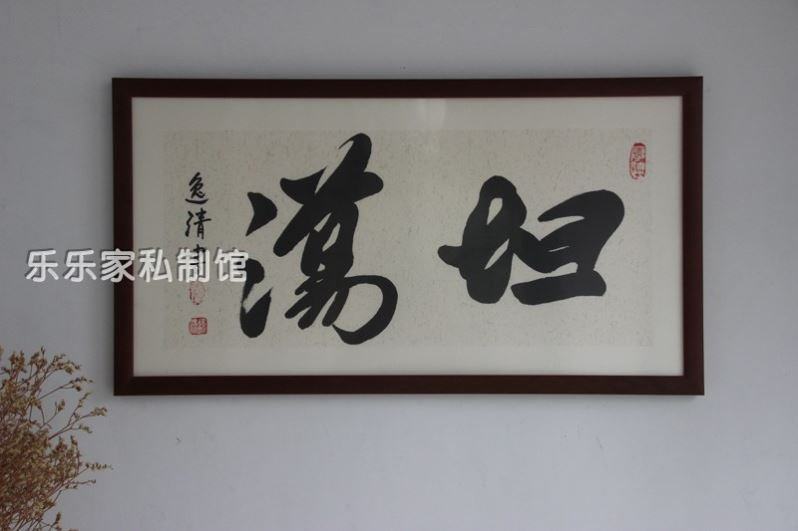 坦蕩
逸清
乐乐家私制馆